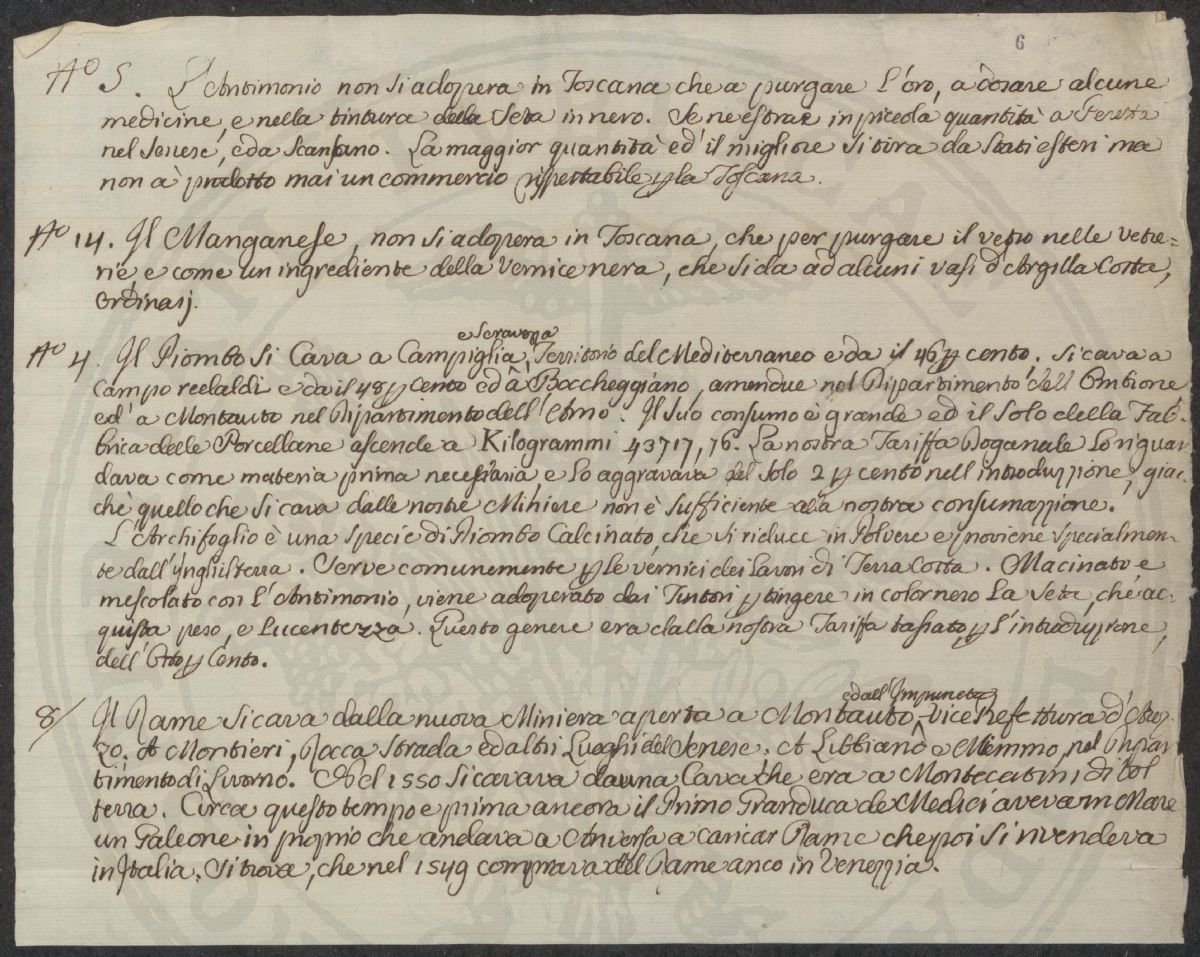 6
Nº 5. L'Antimonio non si adopera in Toscana che a purgare l'oro, a dosare alcune
medicine, e nella tintura della Seta in nero. Se ne estrae in piccola quantità a
nel Senese, e da Scansano. La maggior quantità ed il migliore si tira da Stati esteri ma
non à prodotto mai un commercio rispettabile p la Toscana.
Nº 14. Il Manganese, non si adopera in Toscana, che per purgare il vetro nelle vetre=
rie, e come un ingrediente della Vernice nera, che si da ad alcuni vasi d'Argilla Cotta,
Ordinarj.
e Seravezza
Nº 4. Il Piombo si Cava a Campiglia, Territorio del Mediterraneo e da il 46 p cento. Si cava a
Campo reebaldi e da il 48 p Cento ed à Boccheggiano, amendue nel Dipartimento dell'Ombrone
ed'a Montauto nel Dipartimento dell'Arno. Il suo consumo è grande ed il solo della Fab=
brica delle Porcellane ascende a Kilogrammi 43717,76. La nostra Tariffa Doganale lo riguar
dava come materia prima necessaria, e lo aggravava del solo 2 p cento nell'introduzzione, giac=
chè quello che si cava dalle nostre Miniere non è sufficiente alla nostra consumazzione.
L'Archifoglio è una specie di Piombo Calcinato, che si riduce in Polvere e proviene specialmen=
te dall'Ynghilterra. Serve comunemente p le vernici dei Lavori di Terra Cotta. Macinato e
mescolato con l'Antimonio, viene adoperato dai Tintori p tingere in color nero la Seta, che ac=
quista peso, e Lucentezza. Questo genere era dalla nostra Tariffa tassato, p l'introduzzione,
dell'Otto p Cento.
ed all'Impruneta
8/ Il Rame si cava dalla nuova Miniera aperta a Montauto, vice Prefettura d'Arez=
zo. A Montieri, Rocca Strada ed altri Luoghi del Senese. A Libbiano e Memmo, nel Dipar
timento di Livorno. Nel 1550 si cavava da una Cava che era a Montecatini di Vol
terra. Circa questo tempo e prima ancora il Primo Granduca de Medici aveva in Mare
un Galeone in proprio che andava a Anversa a caricar Rame che poi si rivendeva
in Italia. Si trova, che nel 1549 comprava del Rame anco in Venezzia.